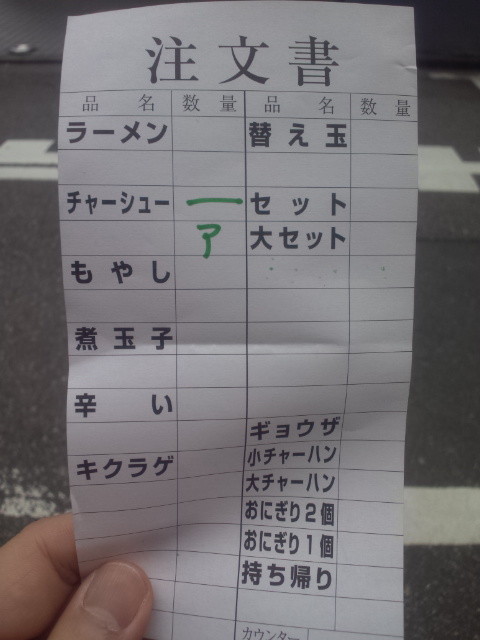 注文書
品名 数量 品名 数量
ラーメン 替え玉
チャーシュー 一 セット
ア 大セット
もやし
煮玉子
辛い ギョウザ
小チャーハン
キクラゲ 大チャーハン
おにぎり2個
おにぎり1個
持ち帰り
カウンター